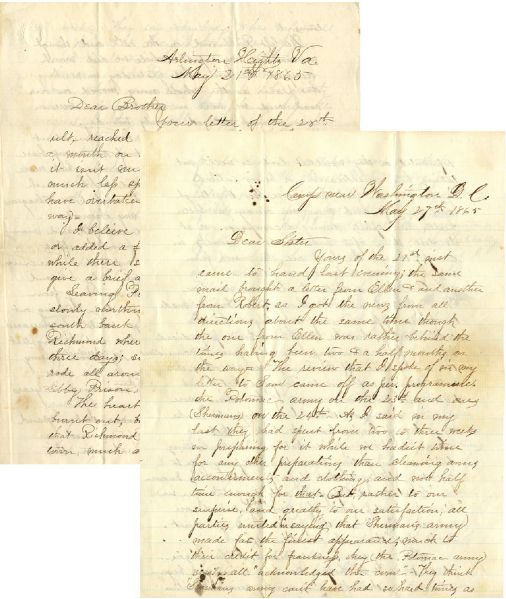 Arlington Heights Va
May 21st 1865
Dear Brother
Your letter of the 28th
ult. reached
a month on
it cant
much less
have
way.
I believe
or added a
while there
give a brief
Leaving
slowly
south bank
Richmond where
three days; so
rode all around
Libby Prison,
The heart
burnt out,
that Richmond
town much
Camp near Washington D. C.
May 27th 1865
Dear Sister
Yours of the 21st inst
came to hand last evening; the same
mail brought a letter from Ellen & and another
from Robert, so I got the news from all
directions about the same time though
the one from Ellen was rather behind the
times having been two & a half months on
the way. The review that I spoke of in my
letter to Sam came off as per programme
the Potomac army on the 23d and ours
(Shermans) on the 24th. As I said in my
last they had spent from two to three weeks
in preparing for it while we hadnt time
for any other preparations than cleansing arms
accouterments and clothing, and not half
time enough for that. But rather to our
surprise, and greatly to our satisfaction, all
parties united in saying that Shermans army
made far the finest appearance, & much to
their credit for frankness, they (the Potomac army)
all "acknowledged the corn". They think
Shermans army cant have had so hard times as